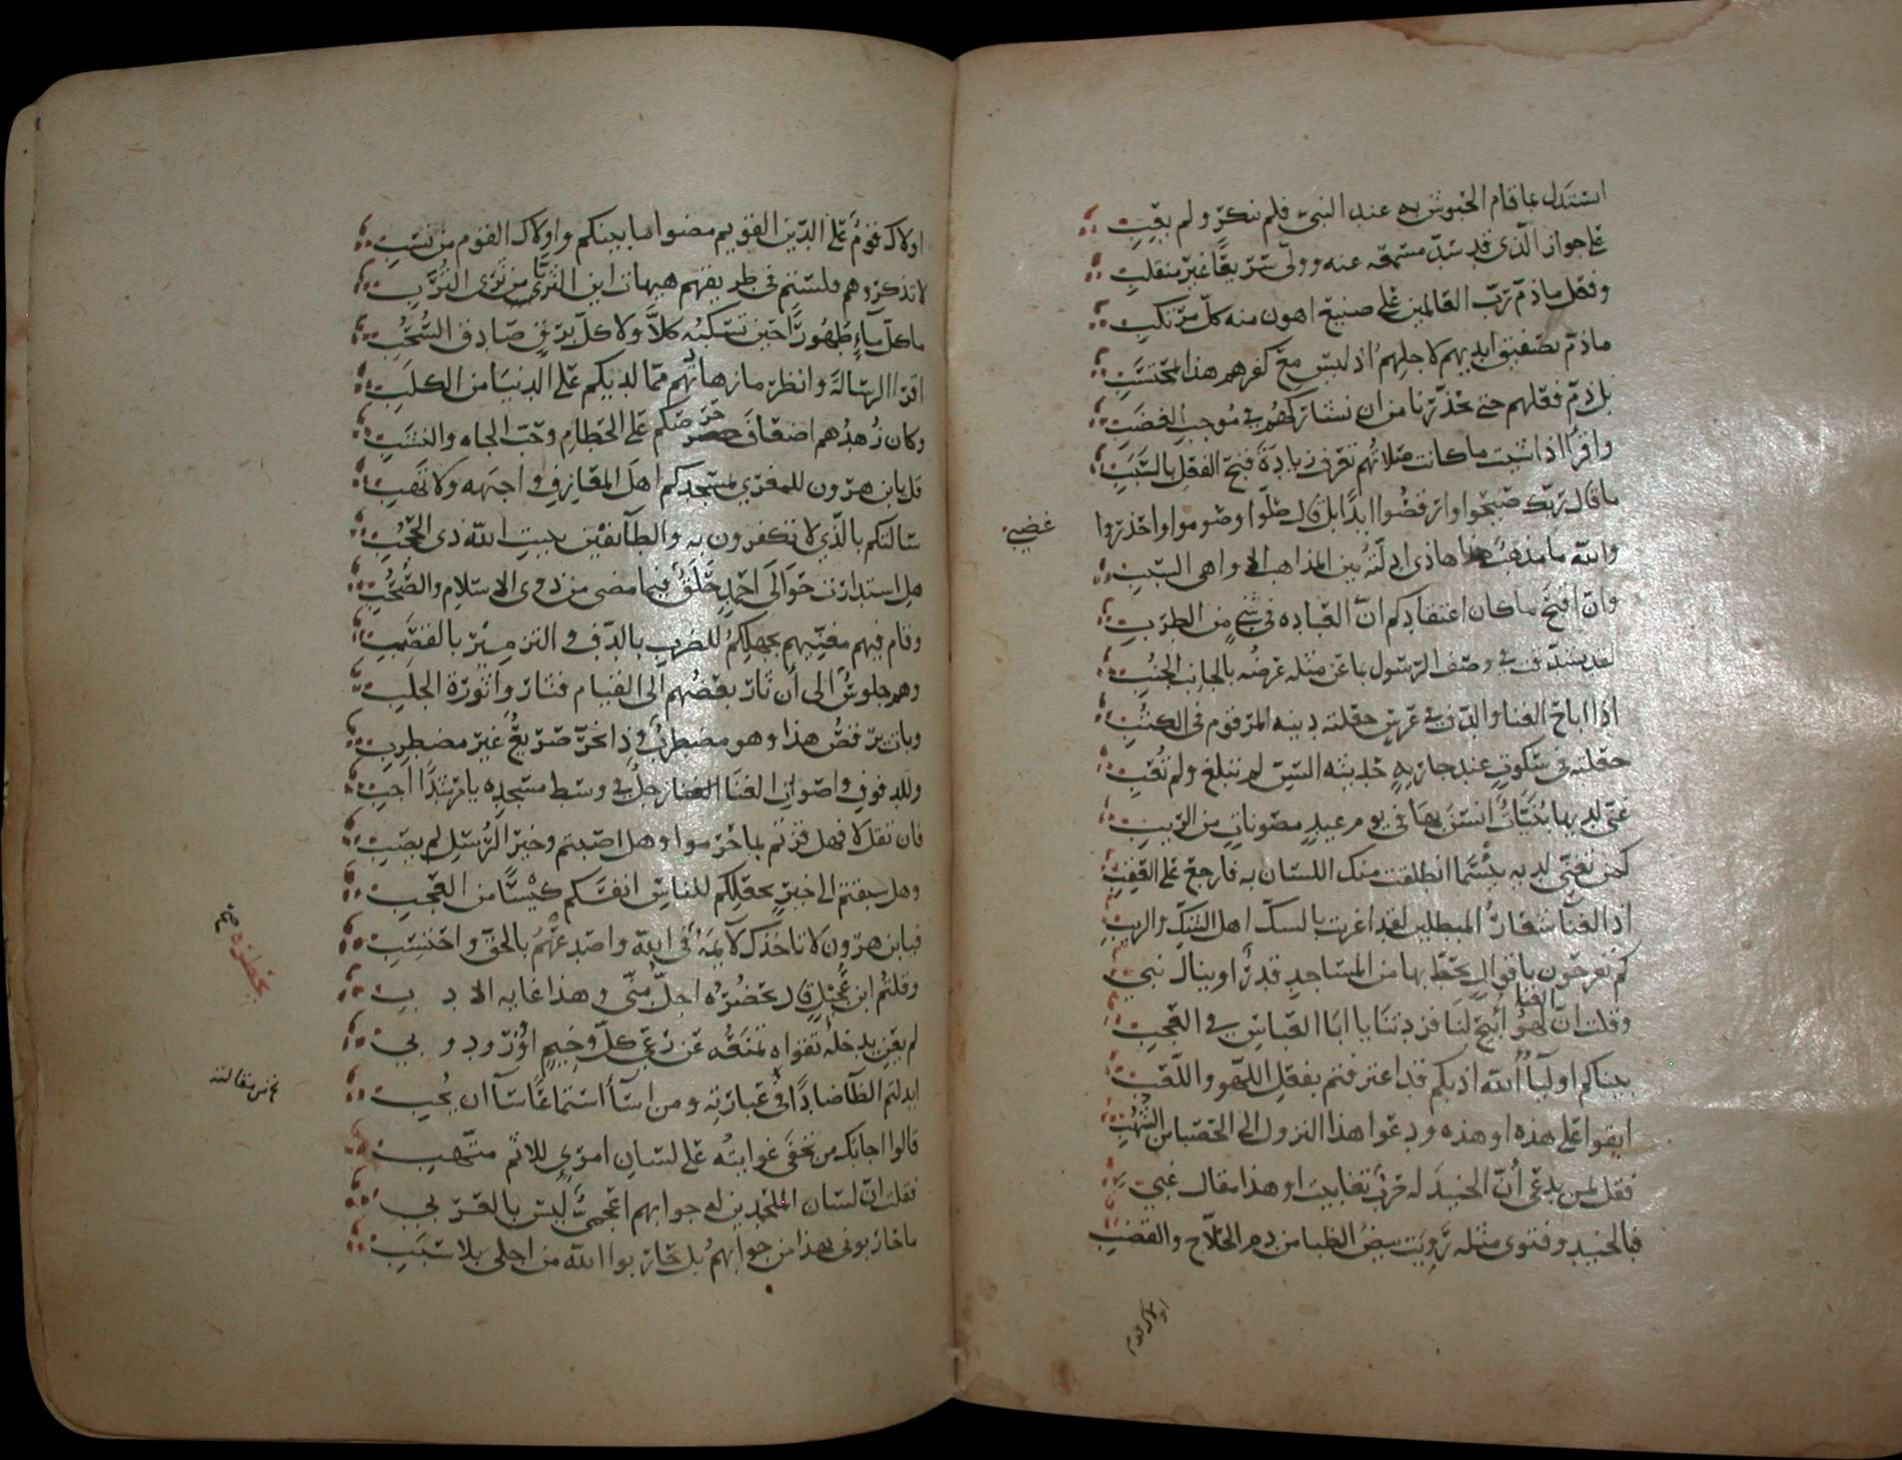 استدل بما قام الحبوش به عند النبي فلم ينكر ولم يعب
على جواز الذي قد سد مسمعه عنه وولى سريعا غير منقلب
وفعل ما ذم رب العالمين على صنيع اهون منه كل مرتكب
ما ذم تصفيق ايديهم لاجلهم اذ ليس مع كفرهم هذا بمحتسب
بل ذم فعلهم حتى يحذرنا من ان نشاركهم في موجب الغضب
واقرا اذا شئت ما كانت صلاتهم تعرف زيادة قبح الفعل بالسبب
ما قال ربك صيحوا وارقصوا ابدا بل قال صلوا وصوموا واحذروا
غضبي
والله ما مذهب هذا هاذي ادلته بين المذاهب الا واهي السبب
وان اقبح ما كان اعتقادكم ان العباده في شي من الطرب
لقد تشدق في وصف الرسول باغن مثله عرضه بالجانب الجنب
اذا اباح الغنا والدف في عرس جعلته دينه المرقوم في الكتب
جعلته في سكوت عند جاريه حديثة السن لم تبلغ ولم تعب
غنى لديها بنيات انسن بها في يوم عيد مصونات من الريب
كمن تغنى لديه بئسما انطلقت منك اللسان به فارجع على العقب
اذ الغنا شعار المبطلين لقد اغربت بالسك اهل الشك والريب
كم تفرحون باقوال يحط بها من المساجد قدرا او ينال نبي
وقلت ان الغنا لهو أبيح لنا فزدتنا يا ابا العباس في العجب
بيناكم اوليا الله اذ بكم قد اعترفتم بفعل اللهو واللعب
ابقوا على هذه او هذه ودعوا هذا النزول الى الحصبا من الشهب
فقل لمن يدعي أن الجنيد له حرب تغابيت او هذا مقال غبي
فبالجنيد وفتوى مثله رويت بيض الظبا من دم الحلاج والقضب
اولاك قوم
اولاك قوم على الدين القويم مضوا ما بينكم واولاك القوم من نسب
لا تذكروهم فلستم في طريقهم هيهات اين الثريا من ثرى الترب
ما كل ماء طهورا حين تسكبه كلا ولا كل برق صادق السحب
اقرا الرسالة وانظر ما زهادتهم مما لديكم على الدنيا من الكلب
وكان زهدهم اضعاف حرصكم على الحطام وحب الجاه والنشب
قل يا بن هرون للمغري بمسجدكم اهل المعازف واجبهه ولا تهب
سالتكم بالذي لا تكفرون به والطائفين ببيت الله ذي الحجب
هل استدارت حوالى احمد حلق فيما مضى من ذوي الاسلام والصحب
وقام فيهم مغنيهم بجهلكم للضرب بالدف والتزمير بالقصب
وهم جلوس الى أن ثار بعضهم الى القيام فثار واثورة الجلب
وبات يرقص هذا وهو مضطرب وذا يخر صريعا غير مضطرب
وللدفوف واصوات الغنا زجل في وسط مسجده يا مرشدا اجب
فان تقل لا فهل فزتم بما حرموا وهل اصبتم وخير الرسل لم يصب
وهل سبقتم الى خير بجعلكم للناس انفسكم كيسا من العجب
فيا بن هرون لا تاخذك لايمة في الله واصدعهم بالحق واحتسب
وقلتم ابن عجيل قال يحضره اجل منى وهذا غايه الادب
يحضره صح
لم يعن يدخله تقواه تمنعه عن زعي كل وخيم اؤزرود وبي
ابدلتم الظا ضادا في عبارته ومن اسآ استماعا سآ ان يجب
عن مقالته
قالوا اجابك من تخفى غوايته على لسان امرئ للاثم منتهب
فقلت ان لسان الملحدين له جوابهم اعجمي ليس بالعربي
ما حاربوني بهذا من جوابهم بل حاربوا الله من اجلي بلا سبب